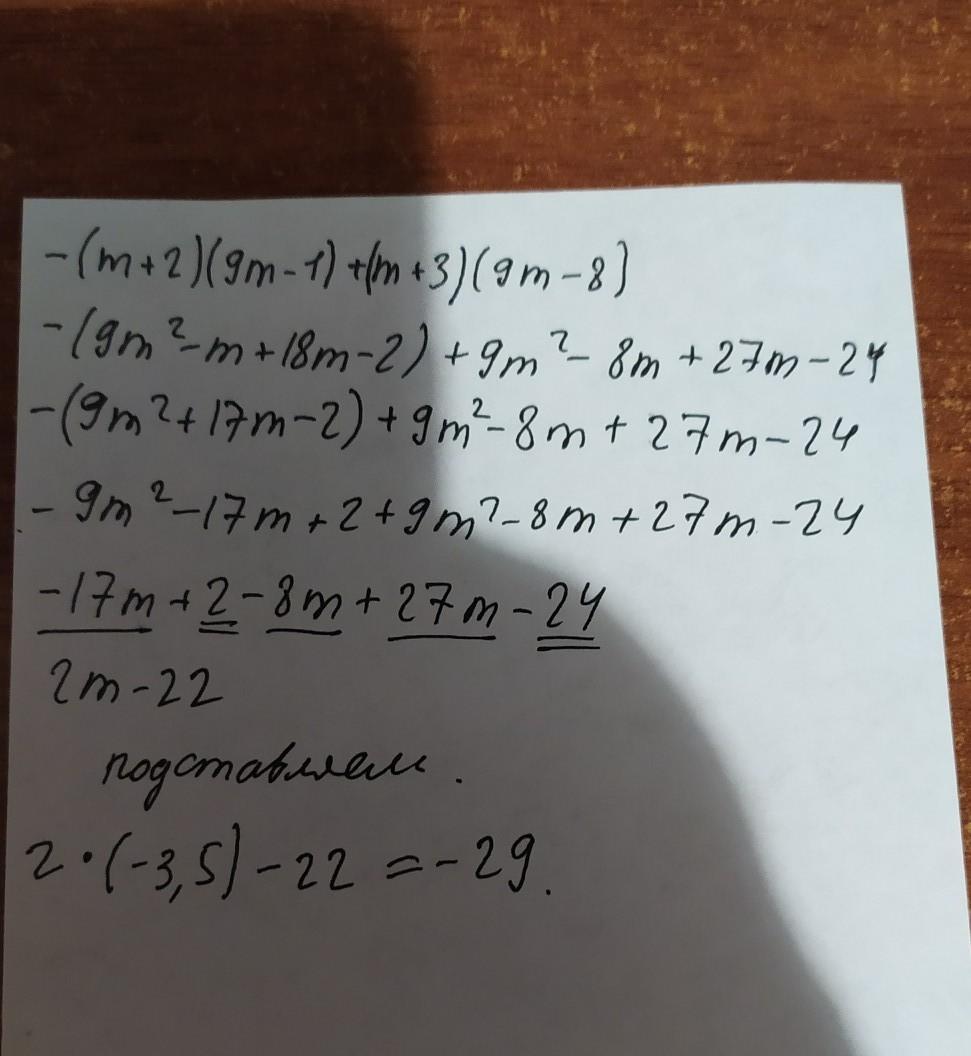 -(m+2)(9m-1)+(m+3)(9m-8)
-(9m²-m+18m-2)+9m²-8m+27m-24
-(9m²+17m-2)+9m²-8m+27m-24
-9m²-17m+2+9m²-8m+27m-24
-17m+2-8m+27m-24
2m-22
подставляем.
2·(-3,5)-22=-29.